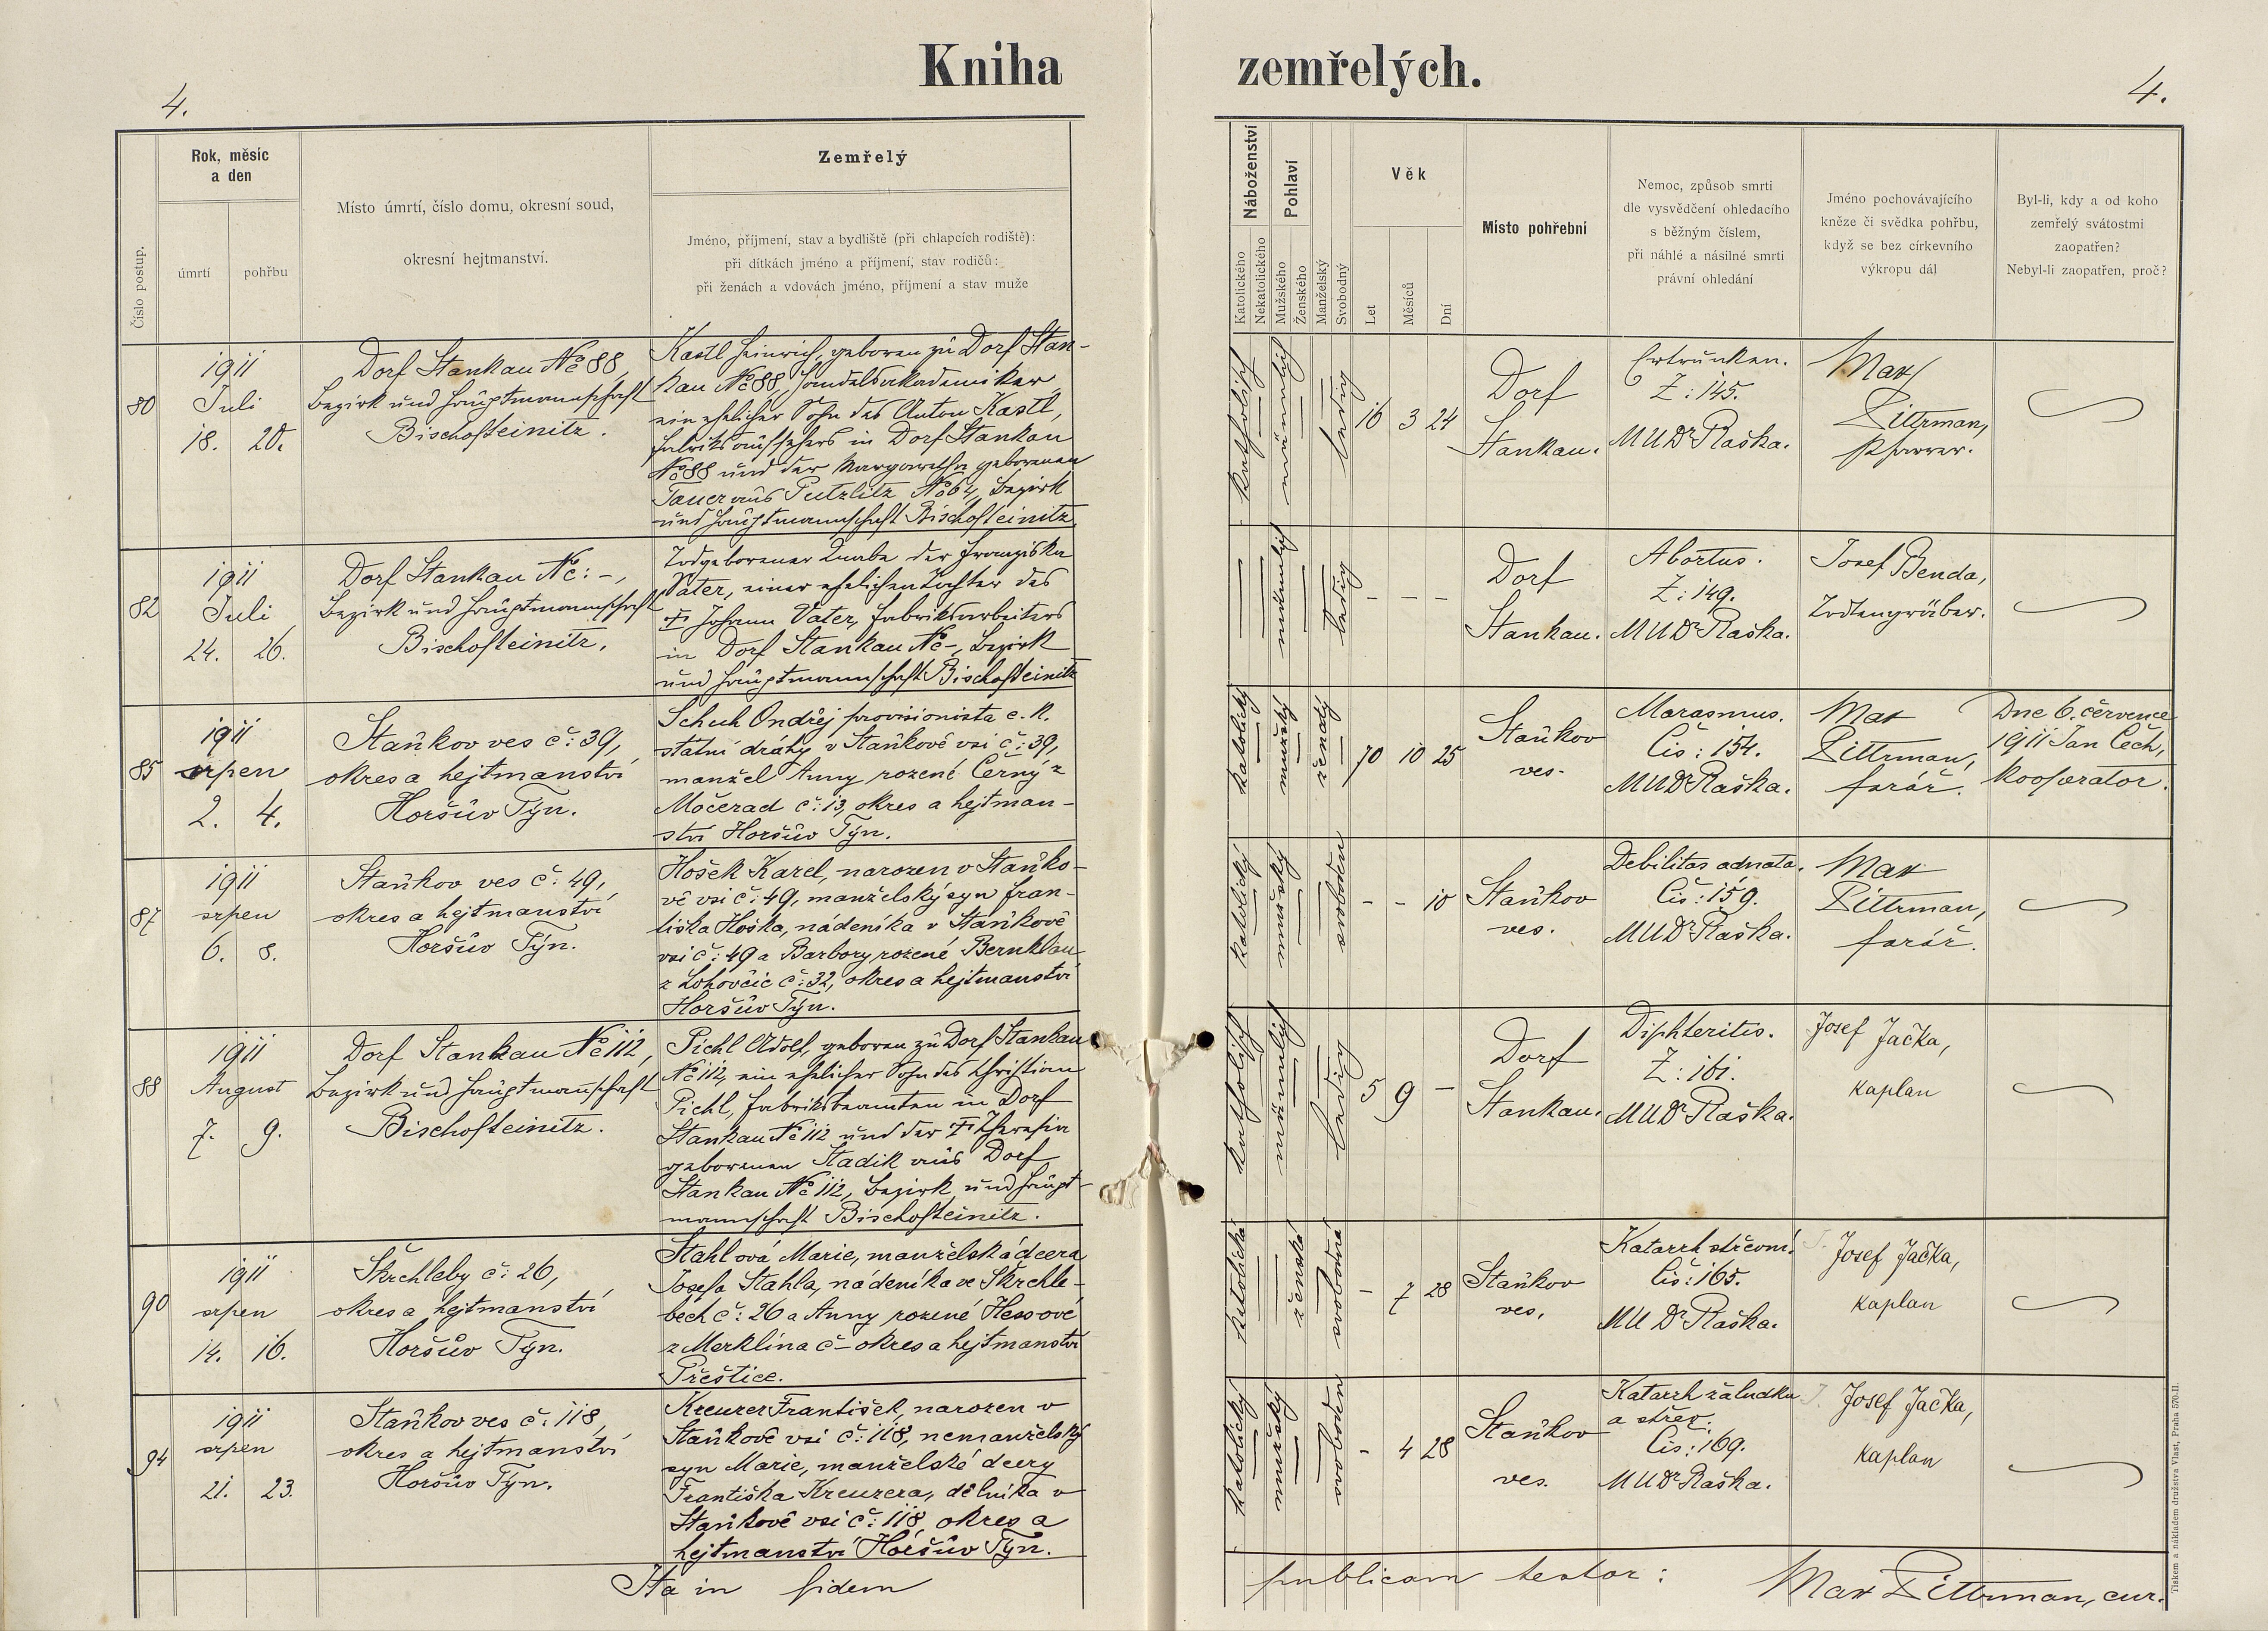 Kniha zemřelých.
4.
4.
Číslo postup.
Rok, měsíc
a den
úmrtí
pohřbu
Místo úmrtí, číslo domu, okresní soud,
okresní hejtmanství.
Zemřelý
Jméno, příjmení, stav a bydliště (při chlapcích rodiště):
při dítkách jméno a příjmení, stav rodičů:
při ženách a vdovách jméno, příjmení a stav muže
Náboženství
Katolického
Nekatolického
Pohlaví
Mužského
Ženského
Manželský
Svobodný
Věk
Let
Měsíců
Dní
Místo pohřební
Nemoc, způsob smrti
dle vysvědčení ohledacího
s běžným číslem,
při náhlé a násilné smrti
právní ohledání
Jméno pochovávajícího
kněze či svědka pohřbu,
když se bez církevního
výkropu dál
Byl-li, kdy a od koho
zemřelý svátostmi
zaopatřen?
Nebyl-li zaopatřen, proč?
80
1911
Juli
18. 20.
Dorf Stankau No 88,
Bezirk und Hauptmannschaft
Bischofteinitz.
Kastl Heinrich, geboren zu Dorf Stan-
kau No 88, Handelsakademiker
ein ehelicher Sohn des Anton Kastl,
Fabriksaufsehers in Dorf Stankau
No 88 und der Margaretha geborenen
Tauer aus Putzlitz No 64, Bezirk
und Hauptmannschaft Bischofteinitz
katholisch
männlich
ledig
16 3 24
Dorf
Stankau.
Ertrunken.
Z: 145.
MUDr Raška.
Max
Pittrman,
Pfarrer.
82
1911
Juli
24. 26.
Dorf Stankau No: -,
Bezirk und Hauptmannschaft
Bischofteinitz.
Todgeborener Knabe der Franziska
Vater, einer ehelichen Tochter des
† Johann Vater, Fabriksarbeiters
in Dorf Stankau No -, Bezirk
und Hauptmannschaft Bischofteinitz
männlich
ledig
- - -
Dorf
Stankau.
Abortus.
Z: 149.
MUDr Raška.
Josef Benda,
Todtengräber.
85
1911
srpen
2. 4.
Staňkov ves č: 39,
okres a hejtmanství
Horšův Týn.
Schuh Ondřej provisionista c. k.
státní dráhy v Staňkově vsi č: 39,
manžel Anny rozené Černý z
Močerad č: 13, okres a hejtman-
ství Horšův Týn.
katolický
mužský
ženatý
70 10 25
Staňkov
ves.
Marasmus.
Čís: 154.
MUDr Raška.
Max
Pittrman,
farář.
Dne 6. července
1911 Jan Čech,
kooperator.
87
1911
srpen
6. 8.
Staňkov ves č: 49,
okres a hejtmanství
Horšův Týn.
Hošek Karel, narozen v Staňko-
vě vsi č: 49, manželský syn Fran-
tiška Hoška, nádeníka v Staňkově
vsi č: 49 a Barbory rozené Bernklau
z Lohovčic č: 32, okres a hejtmanství
Horšův Týn.
katolický
mužský
svoboden
- - 10
Staňkov
ves.
Debilitas adnata.
Čís: 159.
MUDr Raška.
Max
Pittrman,
farář.
88
1911
August
7. 9.
Dorf Stankau No 112,
Bezirk und Hauptmannschaft
Bischofteinitz.
Pichl Adolf, geboren zu Dorf Stankau
No 112, ein ehelicher Sohn des Christian
Pichl, Fabriksbeamten in Dorf
Stankau No 112 und der † Theresia
geborenen Stadik aus Dorf
Stankau No 112, Bezirk und Haupt-
mannschaft Bischofteinitz.
katholisch
männlich
ledig
5 9 -
Dorf
Stankau.
Diphteritis.
Z: 161.
MUDr Raška.
Josef Jačka,
kaplan
90
1911
srpen
14. 16.
Škrchleby č: 26,
okres a hejtmanství
Horšův Týn.
Stahlová Marie, manželská dcera
Josefa Stahla, nádeníka ve Škrchle-
bech č: 26 a Anny rozené Hessové
z Merklína č - okres a hejtmanství
Přeštice.
katolická
ženská
svobodná
- 7 28
Staňkov
ves.
Katarrh střevní.
Čís: 165.
MUDr Raška.
Josef Jačka,
kaplan
94
1911
srpen
21. 23.
Staňkov ves č: 118,
okres a hejtmanství
Horšův Týn.
Kreuzer František, narozen v
Staňkově vsi č: 118, nemanželský
syn Marie, manželské dcery
Františka Kreuzera, dělníka v
Staňkově vsi č: 118, okres a
hejtmanství Horšův Týn.
katolický
mužský
svoboden
- 4 28
Staňkov
ves.
Katarrh žaludku
a střev.
Čís: 169.
MUDr Raška.
Josef Jačka,
kaplan
Ita in fidem publicam testor: Max Pittrman, cur.
Tiskem a nákladem družstva Vlast, Praha 570-II.